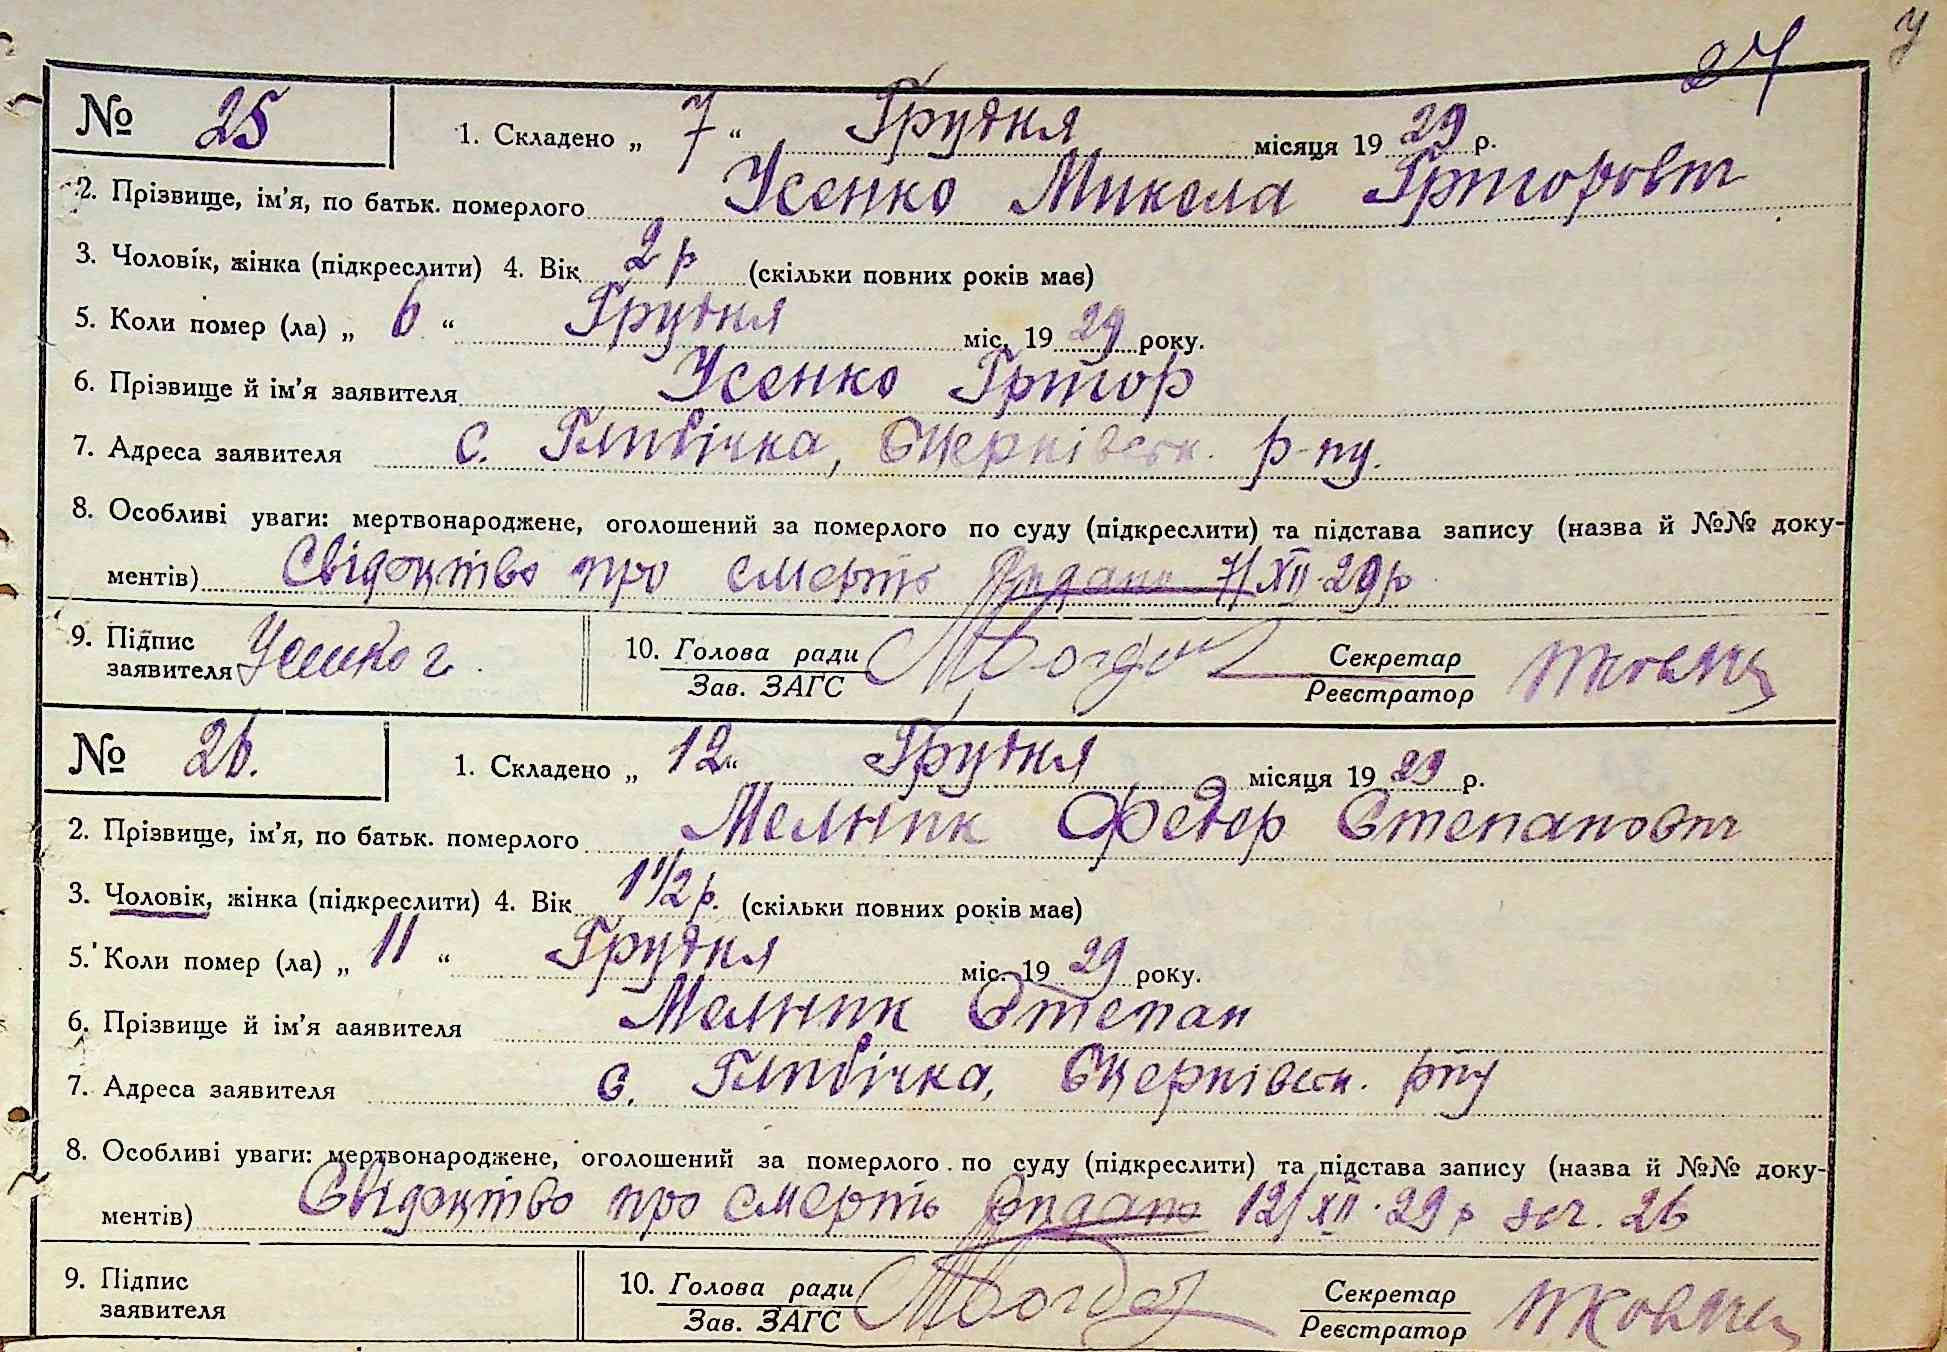 У
27
№ 25
1. Складено „ 7 “ Грудня місяця 19 29 р.
2. Прізвище, ім’я, по батьк. померлого Усенко Микола Григорович
3. Чоловік, жінка (підкреслити) 4. Вік 2 р (скільки повних років має)
5. Коли помер (ла) „ 6 “ Грудня міс. 19 29 року.
6. Прізвище й ім’я заявителя Усенко Григор
7. Адреса заявителя с. Глибічка, р-ну.
8. Особливі уваги: мертвонароджене, оголошений за померлого по суду (підкреслити) та підстава запису (назва й №№ доку-
ментів) Свідоцтво про смерть видано 7/XII-29р
9. Підпис
заявителя
10. Голова ради
Зав. ЗАГС
Секретар
Реєстратор
№ 26.
1. Складено „ 12 “ Грудня місяця 19 29 р.
2. Прізвище, ім’я, по батьк. померлого Мельник Федор Степанович
3. Чоловік, жінка (підкреслити) 4. Вік 1 1/2 р. (скільки повних років має)
5. Коли помер (ла) „ 11 “ Грудня міс. 19 29 року.
6. Прізвище й ім’я ааявителя Мельник Степан
7. Адреса заявителя с. Глибічка, рну
8. Особливі уваги: мертвонароджене, оголошений за померлого по суду (підкреслити) та підстава запису (назва й №№ доку-
ментів) Свідоцтво про смерть видано 12/XII-29р 26
9. Підпис
заявителя
10. Голова ради
Зав. ЗАГС
Секретар
Реєстратор